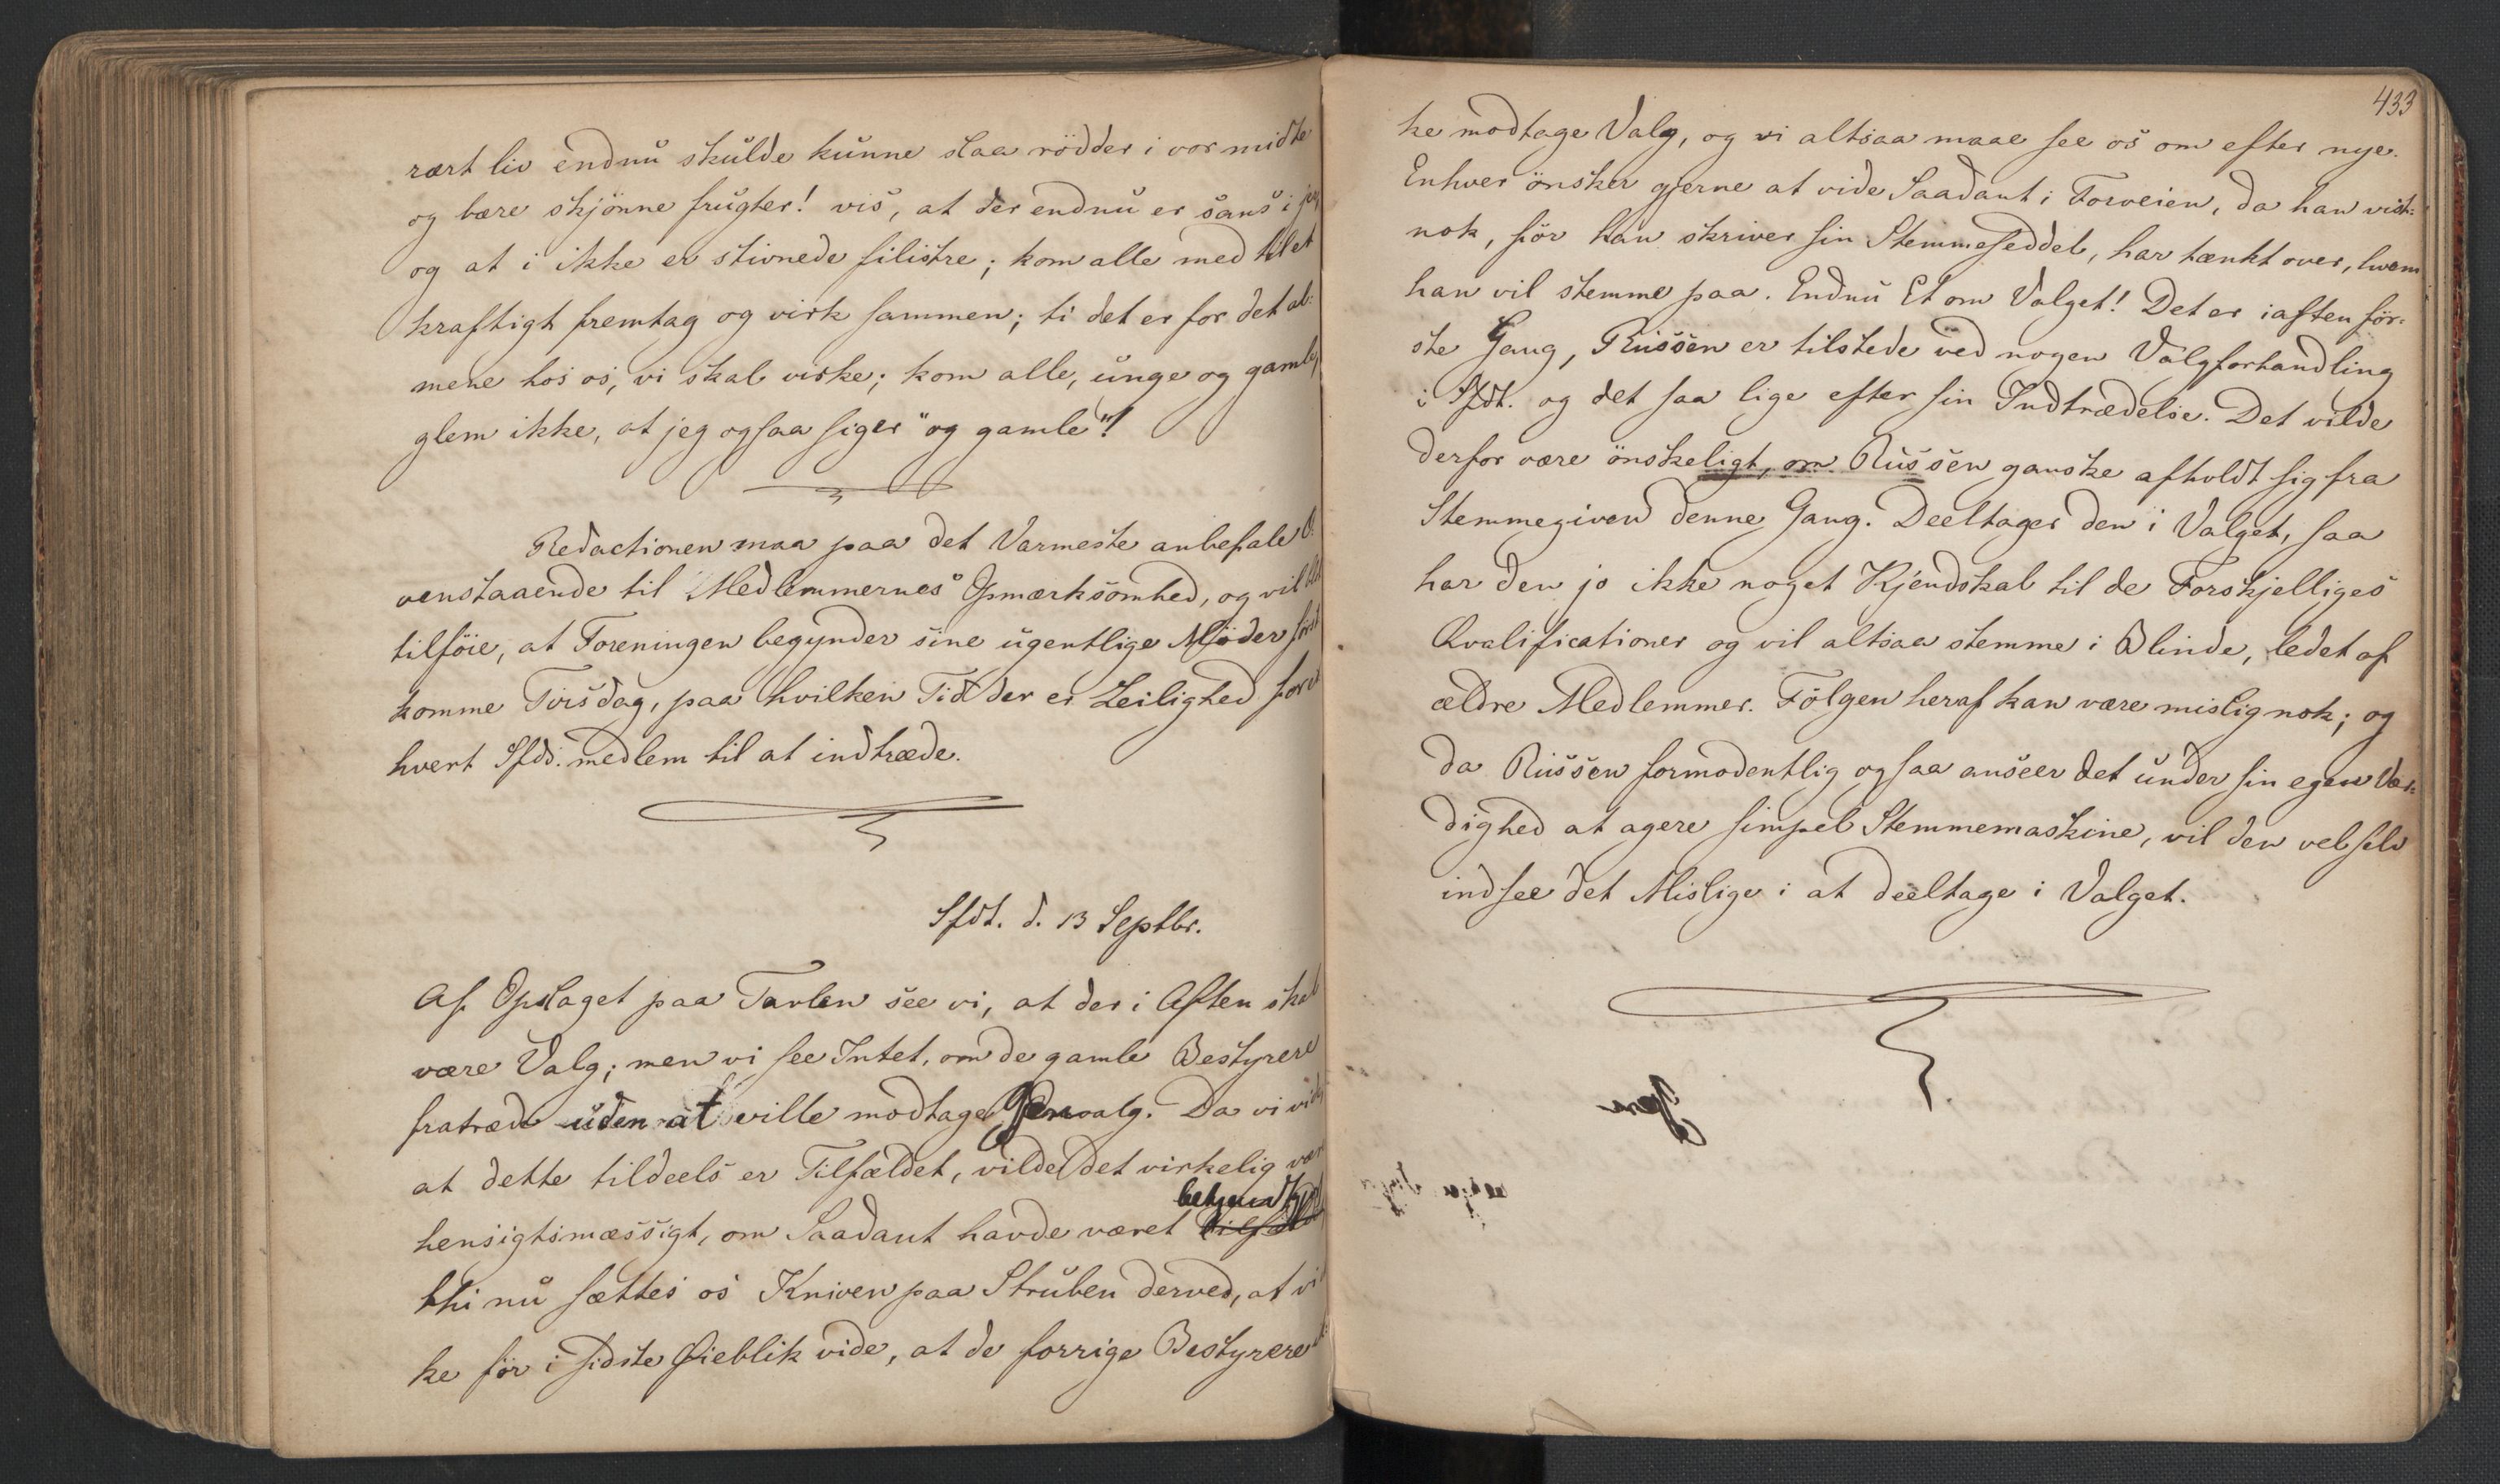 rært liv endnu skulde kunne slaa rödder i vor midte
og bære skjönne frugter! vis, at der endnu er sans i jer
og at i ikke er stivnede filistre; kom alle med til et
kraftigt fremtag og virk sammen; ti det er for det al-
mene hos os, vi skal virke; kom alle, unge og gamle,
glem ikke, at jeg ogsaa siger "og gamle"!
Redactionen maa paa det Varmeste anbefale O-
venstaaende til Medlemmernes Opmærksomhed, og vil blot
tilföie, at Foreningen begynder sine ugentlige Möder först
komme Tirsdag, paa hvilken Tid der er Leilighed for et-
hvert Sfds. medlem til at indtræde.
Sfdt. d. 13 Septbr.
Af Opslaget paa Tavlen see vi, at der i Aften skal
være Valg; men vi see Intet, om de gamle Bestyrere
fratræde uden at ville modtage Genvalg. Da vi vide,
at dette tildeels er Tilfældet, vilde det virkelig være
hensigtsmæssigt, om Saadant havde været bekjendtgjort
thi nu sættes os Kniven paa Struben derved, at vi
ke för i sidste Øieblik vide, at de forrige Bestyrere
433
ke modtage Valg, og vi altsaa maae see os om efter nye.
Enhver önsker gjerne at vide Saadant i Forveien, da han vist-
nok, för han skriver sin Stemmeseddel, har tænkt over, hvem
han vil stemme paa. Endnu Et om Valget! Det er iaften för-
ste Gang, Russen er tilstede ved nogen Valgforhandling
i Sfdt. og det saa lige efter sin Indtrædelse. Det vilde
derfor være önskeligt, om Russen ganske afholdt sig fra
Stemmegivend denne Gang. Deeltager den i Valget, saa
har den jo ikke noget Kjendskab til de Forskjelliges
Qvalificationer og vil altsaa stemme i Blinde, ledet af
ældre Medlemmer. Fölgen heraf kan være mislig nok; og
da Russen formodentlig ogsaa anseer det under sin egen Vær-
dighed at agere simpel Stemmemaskine, vil den vel selv
indsee det Mislige i at deeltage i Valget.